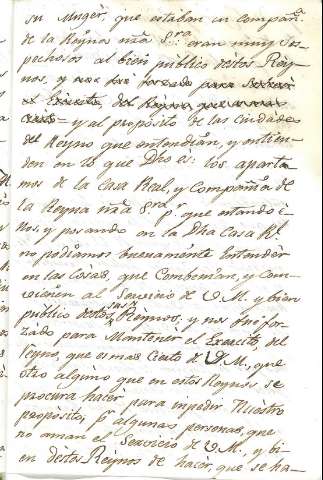 su Muger, que estaban en compañ.ª
de la Reyna nrã S.ra eran muy sos-
pechosos al bien publico destos Rey-
nos, y nos fue forzado para
el Exercito, del Reyno que es mas
= y al proposito de las ciudades
del Reyno que entendian, y entien-
den en lo que Dho es: los aparta-
mos de la Casa Real, y Compañia de
la Reyna nrã S.ra p.r que estando é-
nos, y posando en la Dha Casa R.l
no podiamos buenamente Entender
en las cosas, que Combenian, y Com-
bienen al Servicio de V. M. y bien
publico destos sus Reynos, y nos fue for-
zado para Mantener el Exercito, del
Reyno, que es mas Cierto de V. M., que
otro alguno que en estos Reynos se
procura hacer para inpedir Nuestro
proposito, p.r algunas personas, que
no aman el Servicio de V. M., y bi-
en destos Reynos de hacer, que se ha-